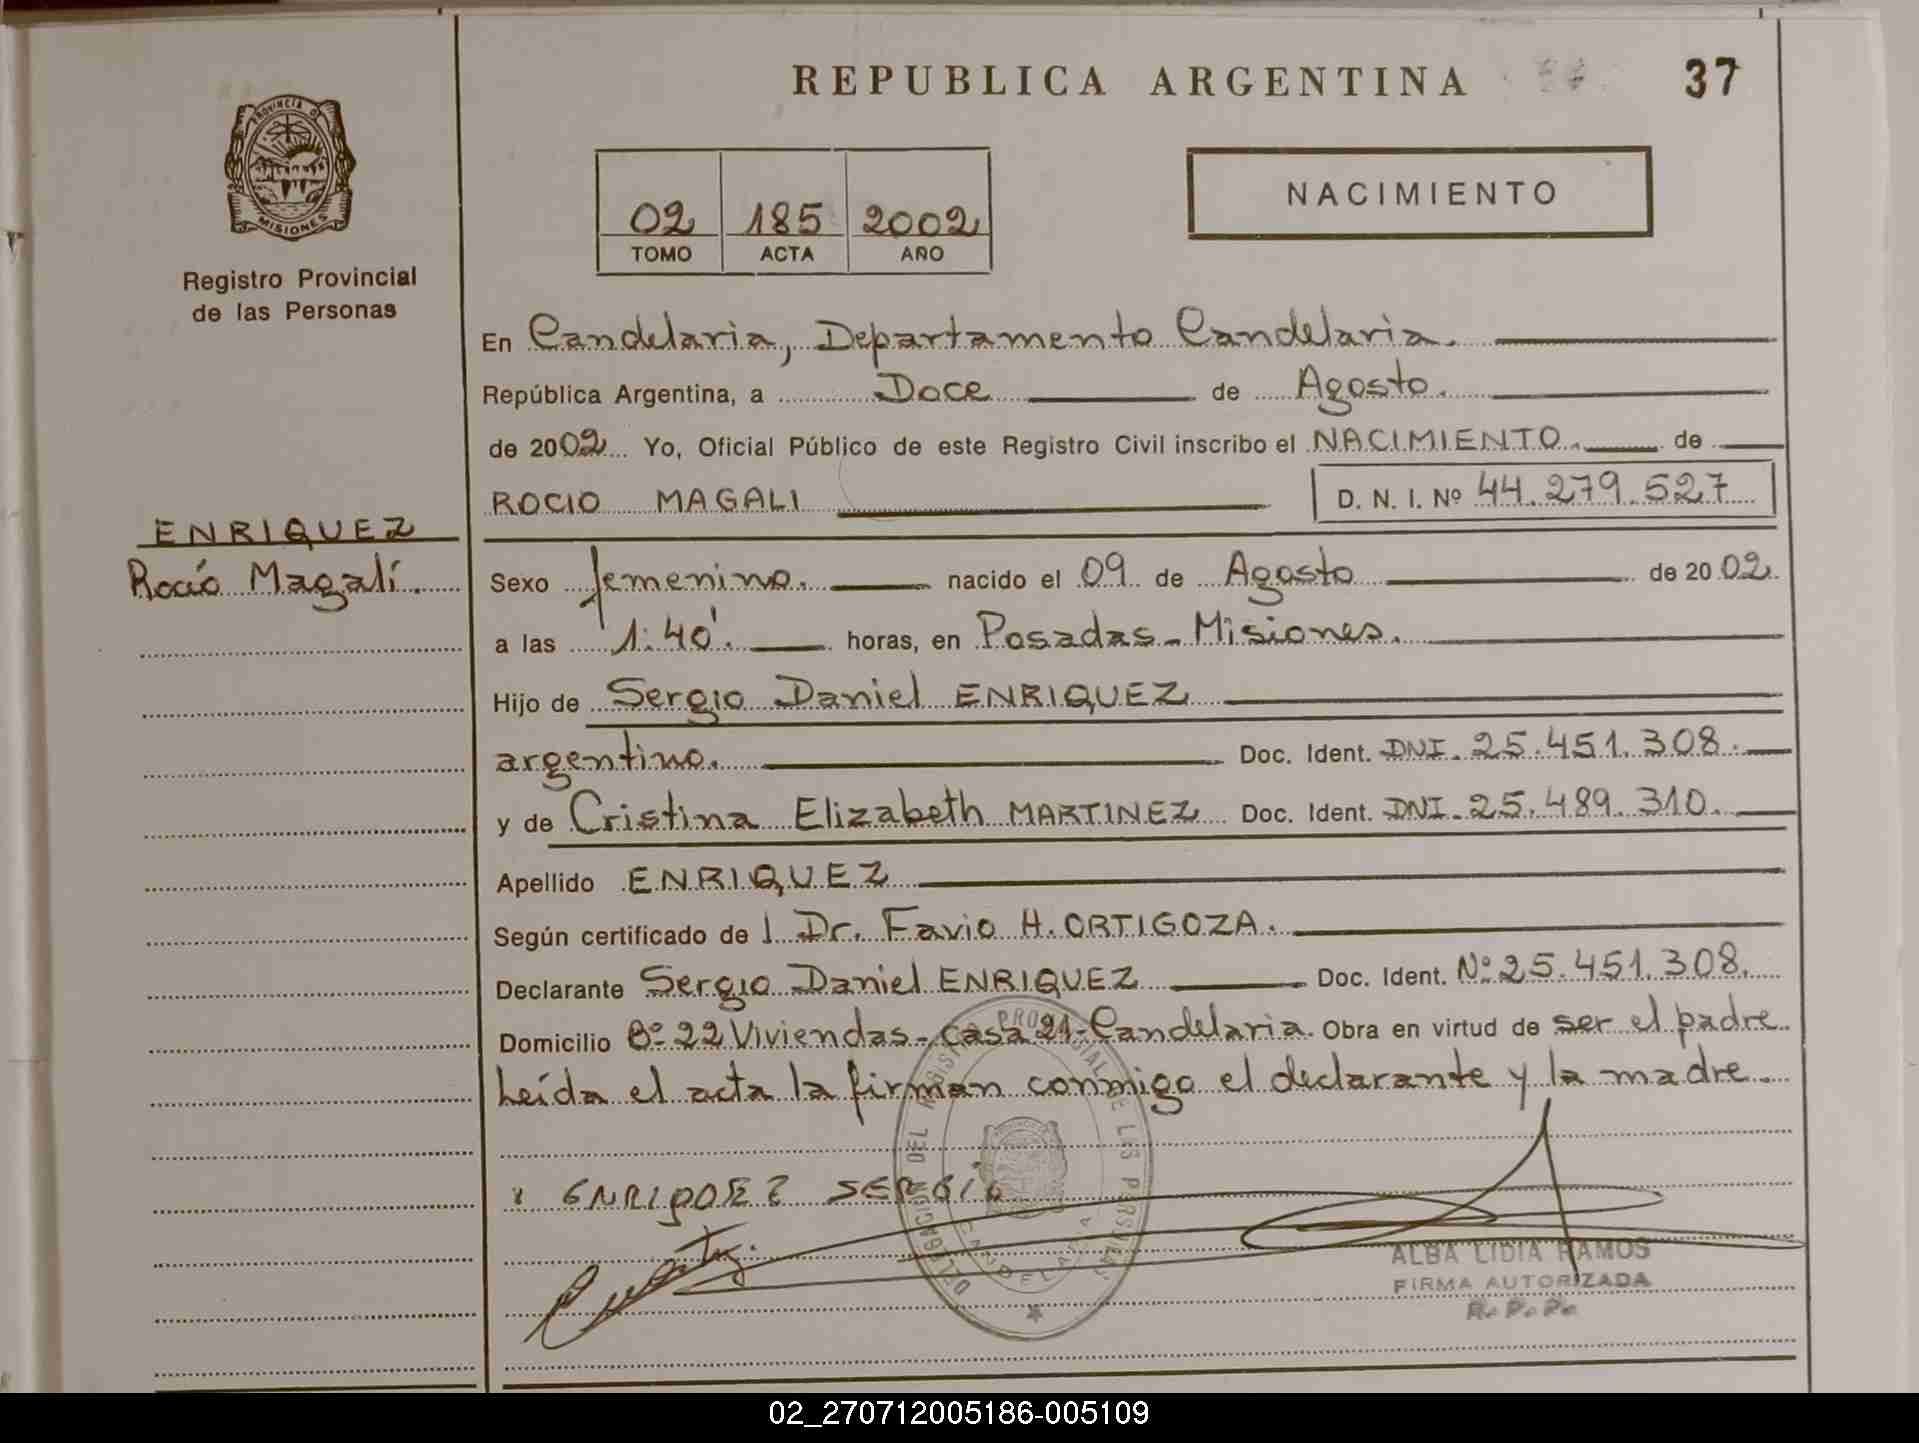 REPUBLICA ARGENTINA
37
PROVINCIA D
MISIONES
Registro Provincial
de las Personas
02 185 2002
TOMO ACTA AÑO
NACIMIENTO
En Candelaria, Departamento Candelaria.
República Argentina, a Doce de Agosto.
de 2002 Yo, Oficial Público de este Registro Civil inscribo el NACIMIENTO. de
ROCIO MAGALI D. N. I. Nº 44.279.527
ENRIQUEZ
Rocío Magalí.
Sexo femenino. nacido el 09 de Agosto de 2002.
a las 1:40'. horas, en Posadas - Misiones.
Hijo de Sergio Daniel ENRIQUEZ
argentino. Doc. Ident. DNI. 25.451.308.
y de Cristina Elizabeth MARTINEZ Doc. Ident. DNI. 25.489.310.
Apellido ENRIQUEZ
Según certificado de l Dr. Favio H. ORTIGOZA.
Declarante Sergio Daniel ENRIQUEZ Doc. Ident. Nº 25.451.308.
Domicilio Bº 22 Viviendas - casa 21 - Candelaria. Obra en virtud de ser el padre.
Leída el acta la firman conmigo el declarante y la madre.
DELEGACION DEL REGISTRO PROVINCIAL DE LAS PERSONAS
CANDELARIA
ENRIQUEZ SERGIO
ALBA LIDIA RAMOS
FIRMA AUTORIZADA
R. P. P.
02_270712005186-005109